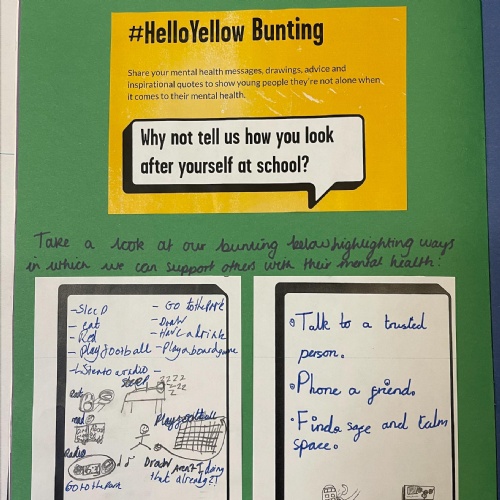 #HelloYellow Bunting
Share your mental health messages, drawings, advice and
inspirational quotes to show young people they're not alone when
it comes to their mental health.
Why not tell us how you look
after yourself at school?
Take a look at our bunting below highlighting ways
in which we can support others with their mental health:
- Sleep
- eat
- Red
- Play football
- Listen to a radio
- Go to the park
- Draw
- Have a drink
- Play a board game
-
Sleep
zzzz
Eat
Play football
Radio
Draw Aren't I doing
that already?!
Go to the Park
• Talk to a trusted
person.
• Phone a friend.
• Find a safe and calm
space.